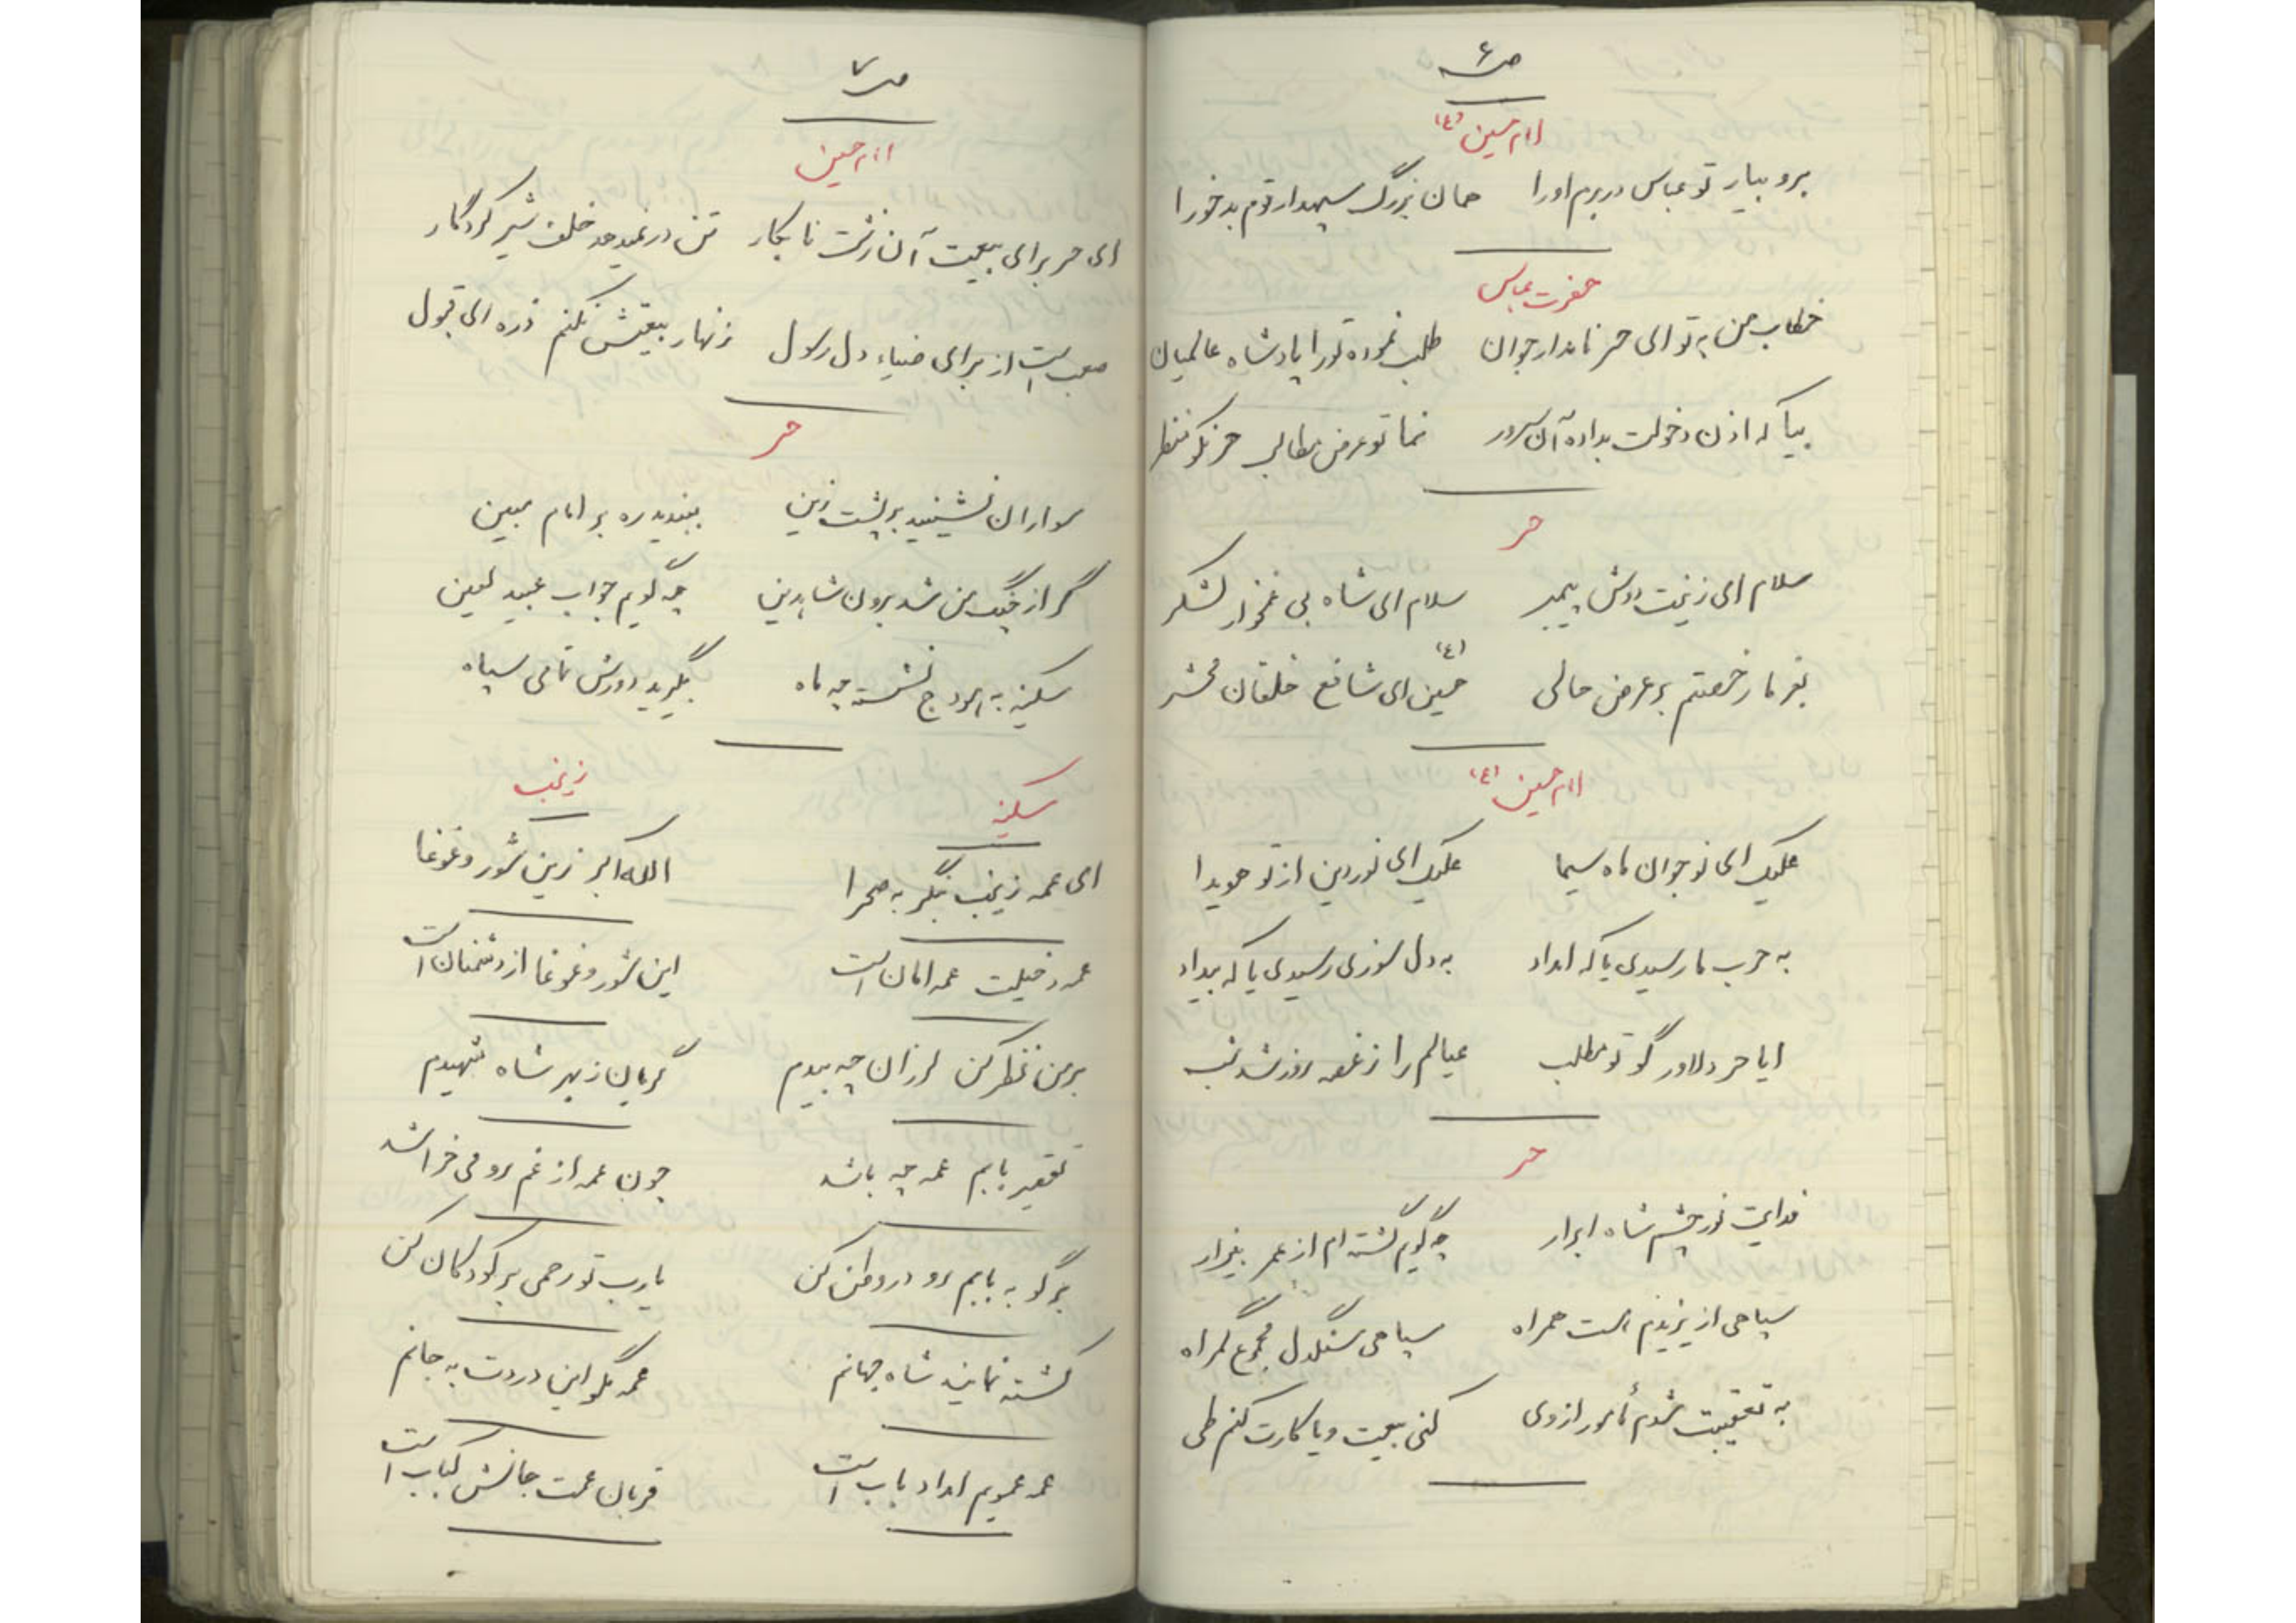 ص ۶
امام حسین (ع)
برو بیار تو عباس در برم او را    همان بزرگ سپهدار قوم بدخو را
حضرت عباس
خطاب من به تو ای حر نامدار جوان    طلب نموده تو را پادشاه عالمیان
بیا که اذن دخولت بداده آن سرور    نما تو عرض مطالب
حر
سلام ای زینت دوش پیمبر    سلام ای شاه بی غمخوار لشکر
بفرما رخصتم بر عرض حالی    حسین (ع) ای شافع خلقان محشر
امام حسین (ع)
علیک ای نوجوان ماه سیما    علیک ای نور دین از تو هویدا
به حرب ما رسیدی یا که امداد    به دل سوزی رسیدی یا که بیداد
ایا حر دلاور گو تو مطلب    عیالم را ز غصه روز شد شب
حر
فدایت نور چشم شاه ابرار    چه گویم گشته ام از عمر بیزار
سپاهی از یزیدم است همراه    سپاهی سنگدل مجموع گمراه
به تعقیبت شدم مأمور از وی    کنی بیعت و یا کارت کنم طی
ص ۷
امام حسین
ای حر برای بیعت آن زشت نابکار    تن در نمیدهد خلف شیر کردگار
صعب است از برای ضیاء دل رسول    زنهار بیعتش نکنم ذره ای قبول
حر
سواران نشینید بر پشت زین    ببندید ره بر امام مبین
گر از چنگ من شد برون شاه دین    چه گویم جواب عبید لعین
سکینه به هودج نشسته چه ماه    بگیرید دورش تمامی سپاه
سکینه    زینب
ای عمه زینب بنگر به صحرا    الله اکبر زین شور و غوغا
عمه دخیلت عمه امان است    این شور و غوغا از دشمنان است
بر من نظر کن لرزان چه بیدم    گریان ز بهر شاه شهیدم
تقصیر بابم عمه چه باشد    چون عمه از غم رو می خراشد
برگو به بابم رو در وطن کن    یارب تو رحمی بر کودکان کن
کشته نمایند شاه جهانم    عمه مگو این دردت به جانم
عمه عمویم امداد باب است    قربان عمت جانش کباب است